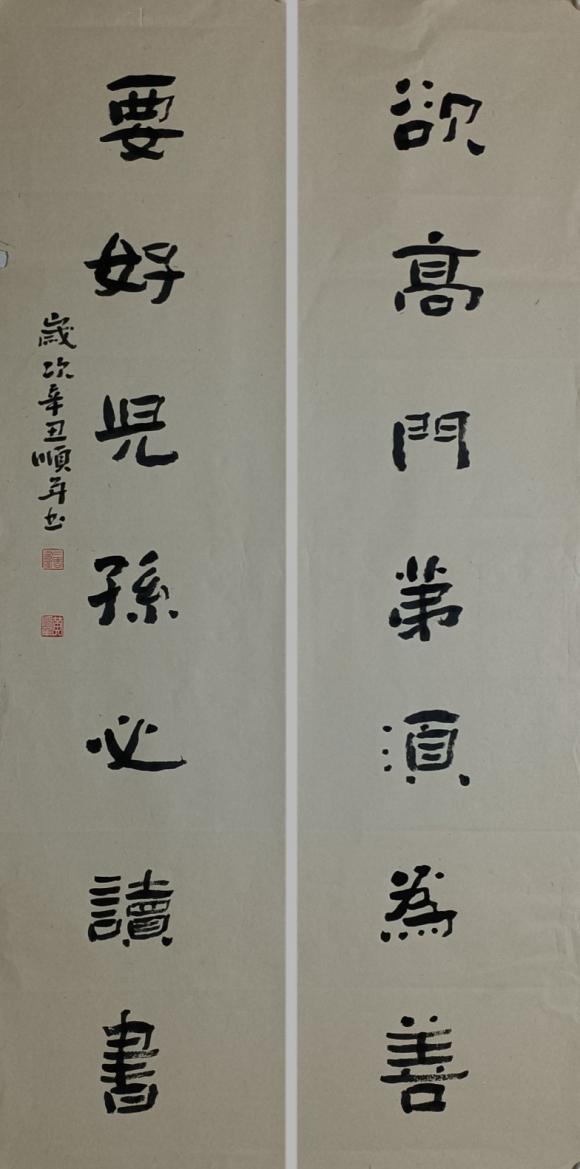 欲高門第須為善
要好児孫必讀書
歲次辛丑順年书